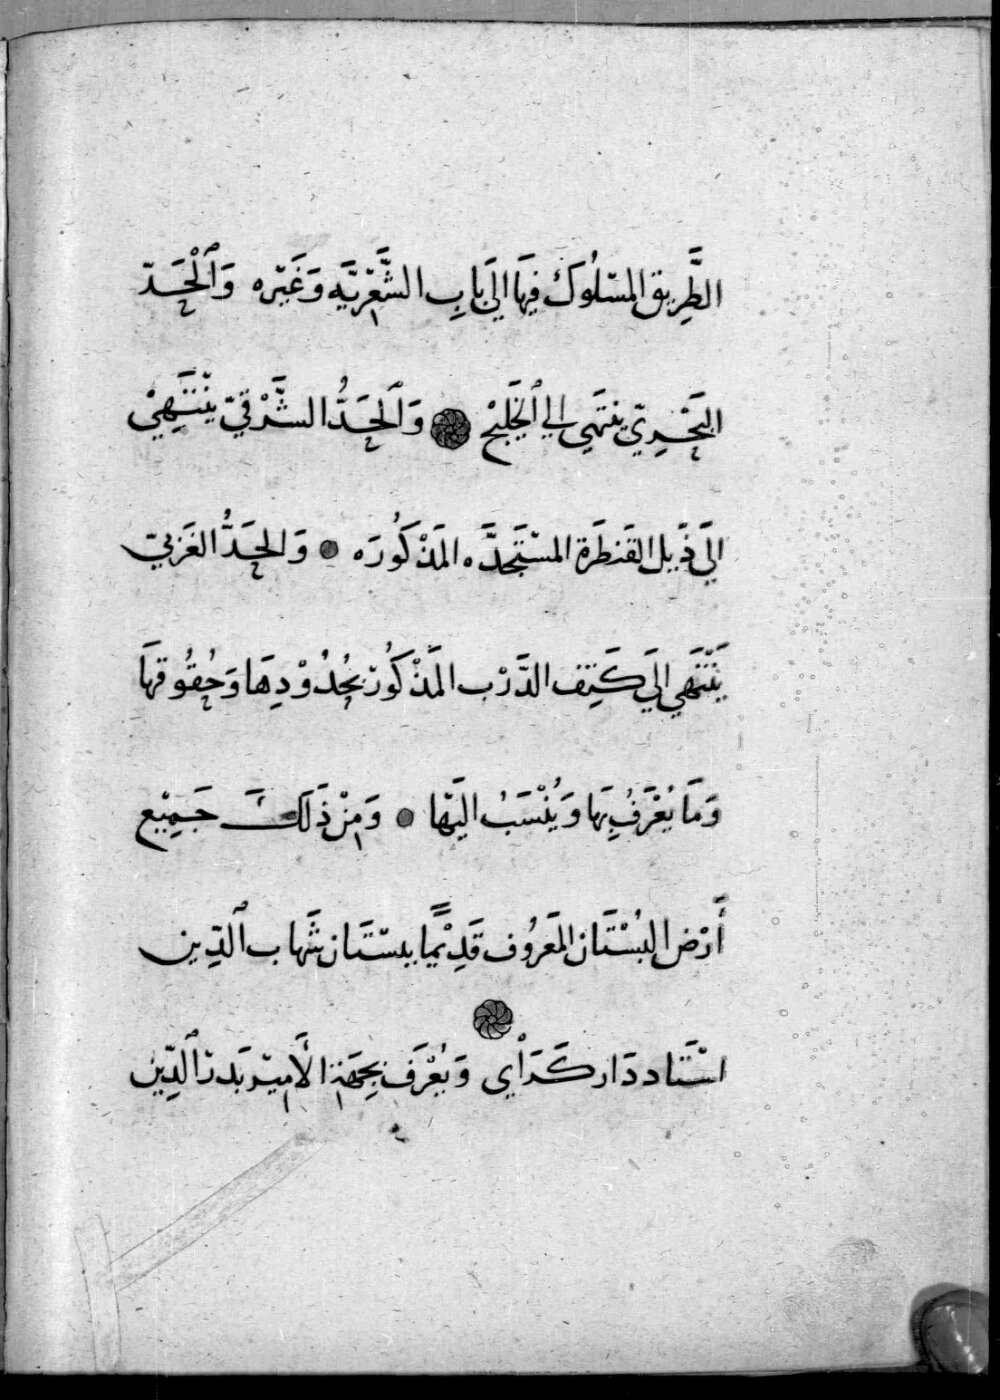 الطَّرِيق المسْلُوك فيهَا الي بَابِ الشَّعْرِيَّه وَغَيْره وَٱلْحَدّ
البَحْرِيّ ينتَهي الي ٱلخَليْج وَٱلحَدُّ الشَّرْقيّ يَنْتَهِيْ
اليَ ذَيل القَنطَرَة المسْتَجَدَّه المَذْكُورَه وَالحَدُّ الغَرْبيّ
يَنْتَهَي اليَ كَتِف الدَّرْب المَذْكُورْ بحُدُوْدِهَا وَحُقُوقهَا
وَمَا يُعْرَفُ بهَا وَيُنْسَبُ اليَهْا وَمِنْ ذَلَكَ جَمِيْع
أَرْض البُسْتَان المَعرُوف قَدِيْمًا ببسْتَان شَهاب ٱلدِّين
اسْتَاددَار كَرَأْي وَيُعْرَف بجِهَة الأَمِيْر بَدرْ ٱلدِّيْن